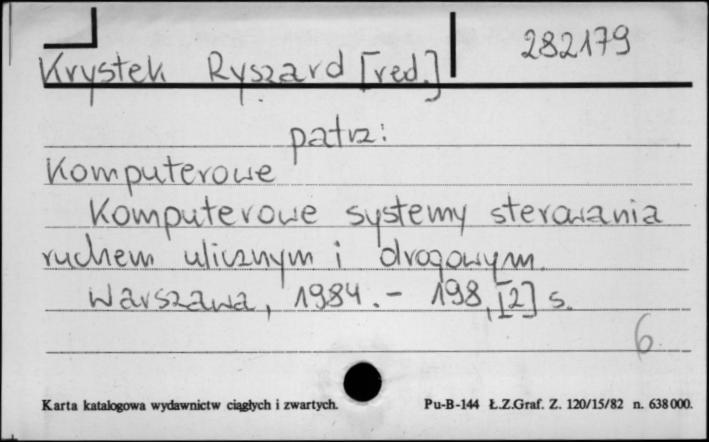 282179
Krystek Ryszard [red.]
patrz:
Komputerowe
Komputerowe systemy sterowania
ruchem ulicznym i drogowym.
Warszawa, 1984. - 198, [2] s.
6
Karta katalogowa wydawnictw ciągłych i zwartych. Pu-B-144 Ł.Z.Graf. Z. 120/15/82 n. 638000.